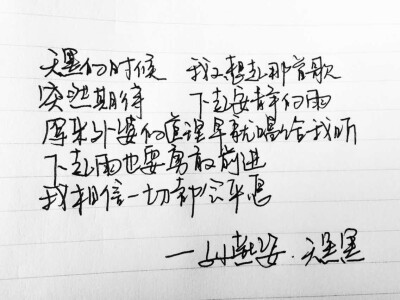 天黑的时候 我又想起那首歌
突然期待 下起安静的雨
原来外婆的道理早就唱给我听
下起雨也要勇敢前进
我相信一切都会平息
——孙燕姿·天黑黑